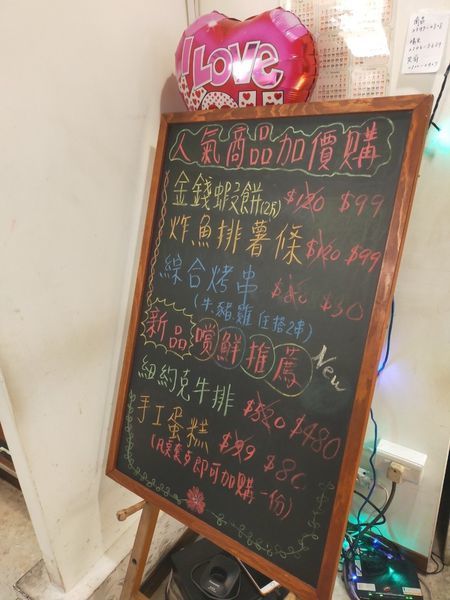 I LOVE
人氣商品加價購
金錢蝦餅(2片) $120 $99
炸魚排薯條 $120 $99
綜合烤串 $80 $50
(牛.豬.雞 任搭2串)
新品嚐鮮推薦 New
紐約克牛排 $520 $480
手工蛋糕 $99 $80
即可加購一份)